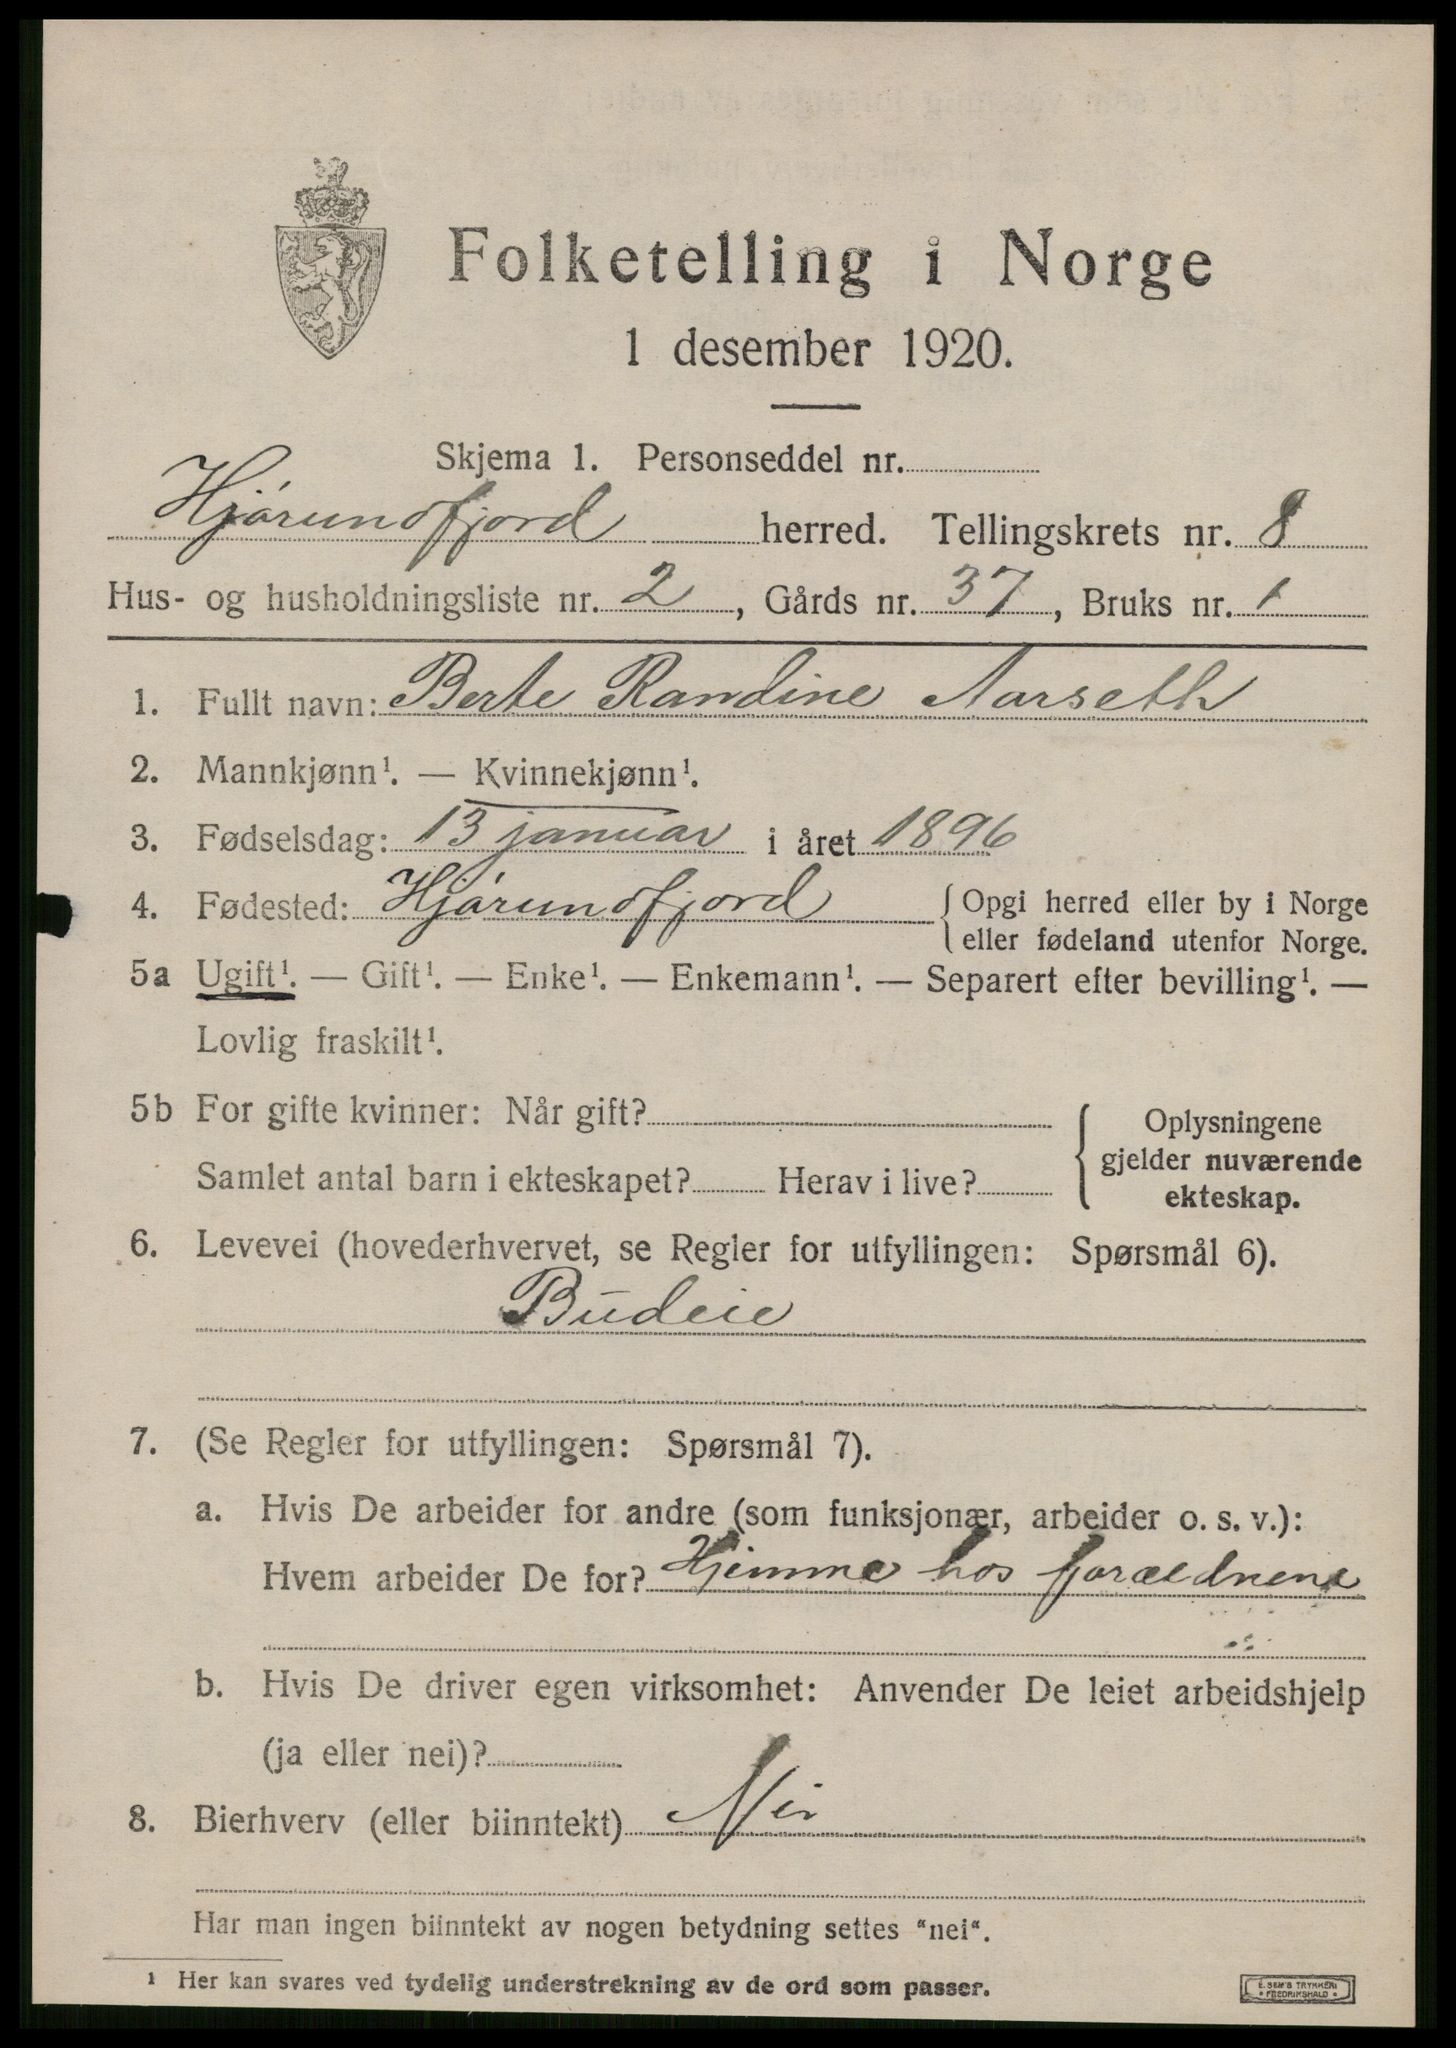 Folketelling i Norge
1 desember 1920.
Skjema 1. Personseddel nr.
Hjørundfjord herred. Tellingskrets nr. 8
Hus- og husholdningsliste nr. 2, Gårds nr. 37, Bruks nr. 1
1. Fullt navn: Berte Randine Aarseth
2. Mannkjønn¹. — Kvinnekjønn¹.
3. Fødselsdag: 13 januar i året 1896
4. Fødested: Hjørundfjord { Opgi herred eller by i Norge
eller fødeland utenfor Norge.
5a Ugift¹. — Gift¹. — Enke¹. — Enkemann¹. — Separert efter bevilling¹. —
Lovlig fraskilt¹.
5b For gifte kvinner: Når gift? { Oplysningene
gjelder nuværende
ekteskap.
Samlet antal barn i ekteskapet? Herav i live?
6. Levevei (hovederhvervet, se Regler for utfyllingen: Spørsmål 6).
Budeie
7. (Se Regler for utfyllingen: Spørsmål 7).
a. Hvis De arbeider for andre (som funksjonær, arbeider o. s. v.):
Hvem arbeider De for? Hjemme hos foreldrene
b. Hvis De driver egen virksomhet: Anvender De leiet arbeidshjelp
(ja eller nei)?
8. Bierhverv (eller biinntekt) Nei
Har man ingen biinntekt av nogen betydning settes "nei".
¹ Her kan svares ved tydelig understrekning av de ord som passer.
E. SEM'S TRYKKERI
• FREDRIKSHALD •